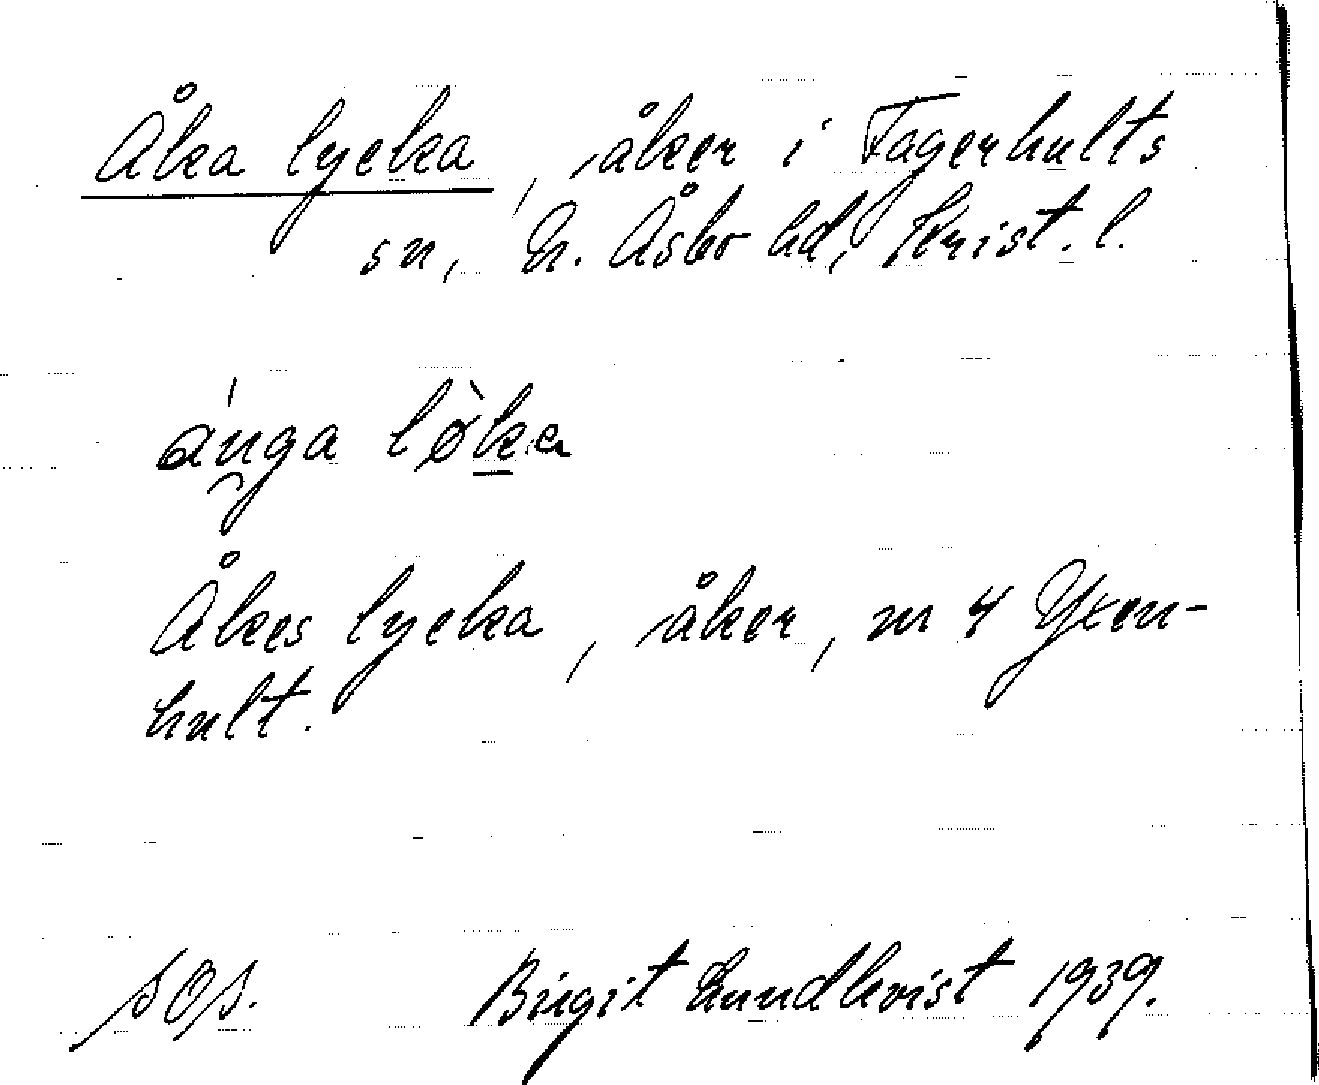 Åka lycka, åker i Fagerhults
sn, N. Åsbo hd, Krist. l.
ånga løka
Åkes lycka, åker, m 4 Yxen-
hult.
SOS. Birgit Lundkvist 1939.